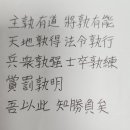 主孰有道 將孰有能
天地孰得 法令孰行
兵衆孰强 士卒孰練
賞罰孰明
吾以此 知勝負矣